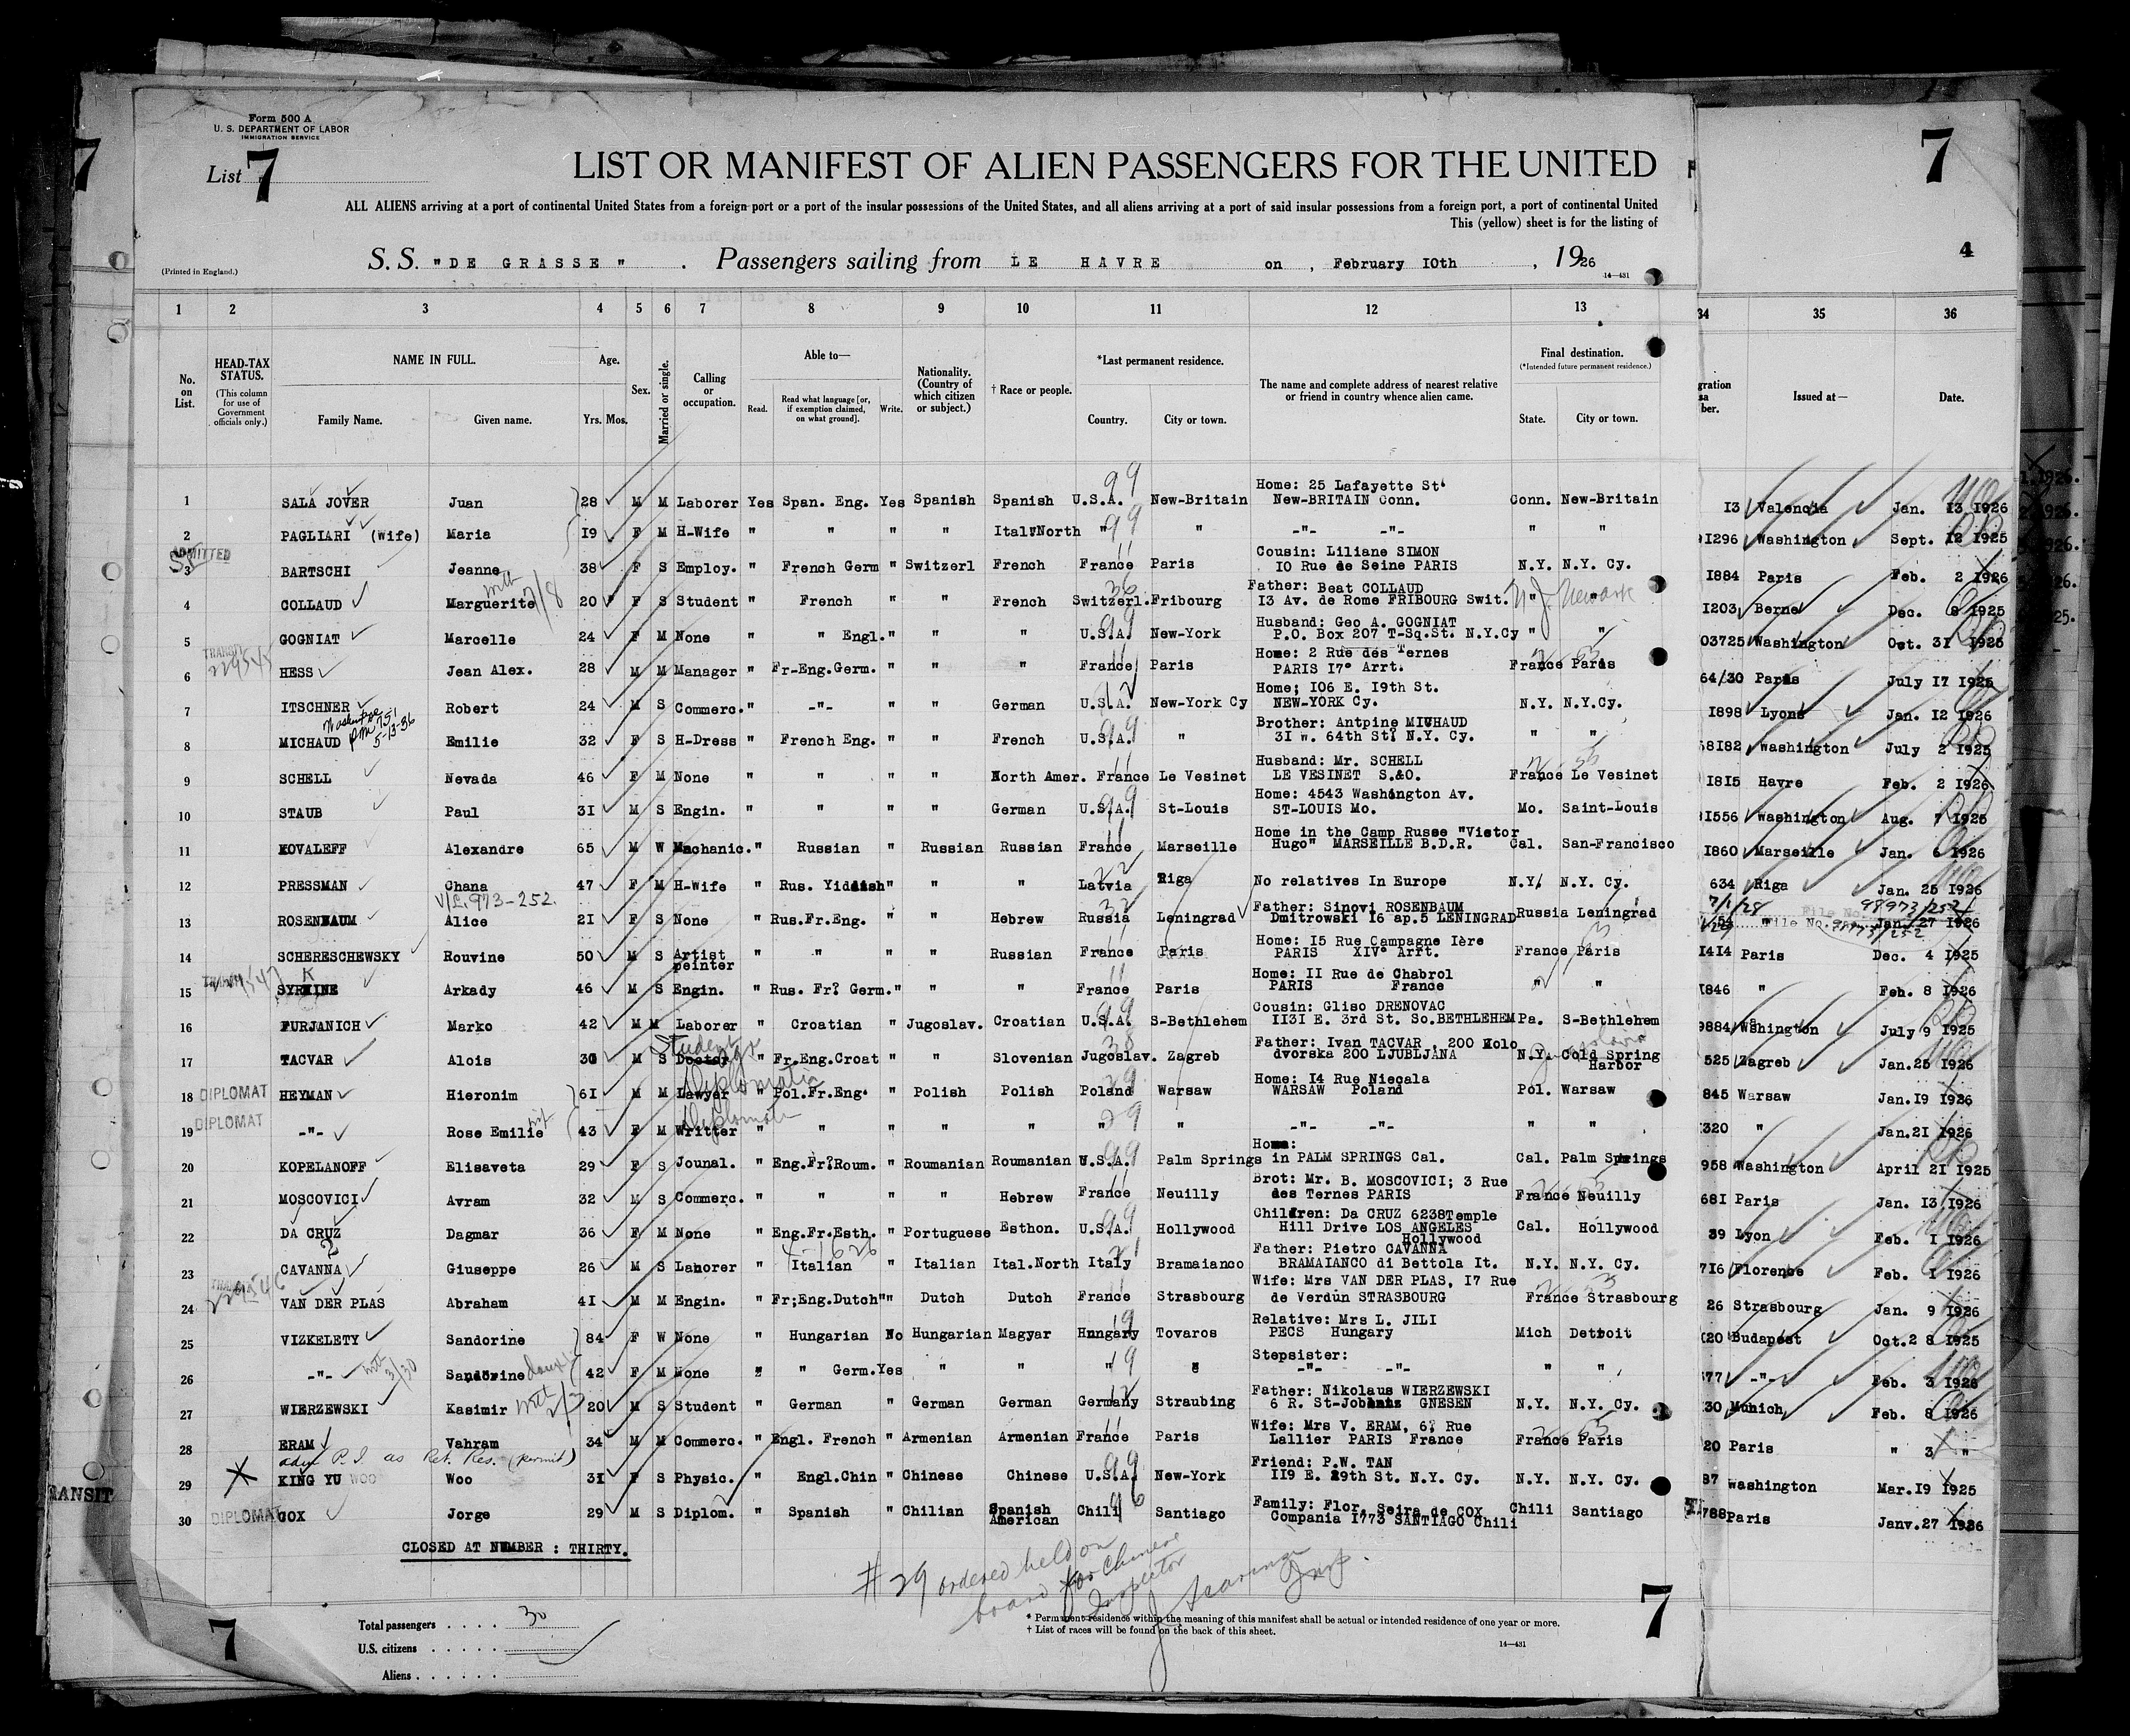 Form 500 A
U. S. DEPARTMENT OF LABOR
IMMIGRATION SERVICE
List 7
LIST OR MANIFEST OF ALIEN PASSENGERS FOR THE UNITED
ALL ALIENS arriving at a port of continental United States from a foreign port or a port of the insular possessions of the United States, and all aliens arriving at a port of said insular possessions from a foreign port, a port of continental United
This (yellow) sheet is for the listing of
(Printed in England.)
S. S. "DE GRASSE". Passengers sailing from LE HAVRE on, February 10th, 1926
14—431
7
4
1 2 3 4 5 6 7 8 9 10 11 12 13 34 35 36
No. on List.
HEAD-TAX STATUS.
(This column for use of Government officials only.)
NAME IN FULL.
Family Name. Given name.
Age.
Yrs. Mos.
Sex.
Married or single.
Calling or occupation.
Able to—
Read. Read what language [or, if exemption claimed, on what ground]. Write.
Nationality. (Country of which citizen or subject.)
† Race or people.
*Last permanent residence.
Country. City or town.
The name and complete address of nearest relative or friend in country whence alien came.
Final destination.
(*Intended future permanent residence.)
State. City or town.
Issued at— Date.
1 SALA JOVER Juan 28 M M Laborer Yes Span. Eng. Yes Spanish Spanish U.S.A. New-Britain Home: 25 Lafayette St New-BRITAIN Conn. Conn. New-Britain 13 Valencia Jan. 13 1926
2 PAGLIARI (Wife) Maria 19 F M H-Wife " " " " Ital North " " -"- -"- " " 1296 Washington Sept. 12 1925
ADMITTED
3 BARTSCHI Jeanne 38 F S Employ. " French Germ " Switzerl French France Paris Cousin: Liliane SIMON 10 Rue de Seine PARIS N.Y. N.Y. Cy. 1884 Paris Feb. 2 1926
4 COLLAUD Marguerite 20 F S Student " French " " French Switzerl. Fribourg Father: Beat COLLAUD 13 Av. de Rome FRIBOURG Swit. " " N.J. Newark 1203 Berne Dec. 8 1925
5 GOGNIAT Marcelle 24 F M None " " Engl. " " " U.S.A. New-York Husband: Geo A. GOGNIAT P.O. Box 207 T-Sq.St. N.Y.Cy " " 03725 Washington Oct. 31 1925
TRANSIT 229545
6 HESS Jean Alex. 28 M M Manager " Fr-Eng.Germ. " " " France Paris Home: 2 Rue des Ternes PARIS 17° Arrt. France Paris 64/30 Paris July 17 1925
7 ITSCHNER Robert 24 M S Commerc. " -"- " " German U.S.A. New-York Cy Home; 106 E. 19th St. NEW-YORK Cy. N.Y. N.Y.Cy. 1898 Lyons Jan. 12 1926
8 MICHAUD Emilie 32 F S H-Dress " French Eng. " " French U.S.A. " Brother: Antpine MICHAUD 31 w. 64th St. N.Y. Cy. " " 58182 Washington July 2 1925
9 SCHELL Nevada 46 F M None " " " " North Amer. France Le Vesinet Husband: Mr. SCHELL LE VESINET S.&O. France Le Vesinet 1815 Havre Feb. 2 1926
10 STAUB Paul 31 M S Engin. " " " " German U.S.A. St-Louis Home: 4543 Washington Av. ST-LOUIS Mo. Mo. Saint-Louis 1556 Washington Aug. 7 1925
11 KOVALEFF Alexandre 65 M W Machanic. " Russian " Russian Russian France Marseille Home in the Camp Russe "Victor Hugo" MARSEILLE B.D.R. Cal. San-Francisco 1860 Marseille Jan. 6 1926
12 PRESSMAN Chana 47 F M H-Wife " Rus. Yiddish " " " Latvia Riga No relatives In Europe N.Y. N.Y. Cy. 634 Riga Jan. 25 1926
V/L. 973-252.
13 ROSENBAUM Alice 21 F S None " Rus.Fr.Eng. " " Hebrew Russia Leningrad Father: Sinovi ROSENBAUM Dmitrowski 16 ap.5 LENINGRAD Russia Leningrad 54 " Jan. 27 1926
7/1/28 98973/252
File No.
14 SCHERESCHEWSKY Rouvine 50 M S Artist peinter " " " " Russian France Paris Home: 15 Rue Campagne Ière PARIS XIV° Arrt. France Paris 1414 Paris Dec. 4 1925
15 SYRKINE Arkady 46 M S Engin. " Rus. Fr. Germ. " " " France Paris Home: 11 Rue de Chabrol PARIS France " " 1846 " Feb. 8 1926
16 FURJANICH Marko 42 M M Laborer " Croatian " Jugoslav. Croatian U.S.A. S-Bethlehem Cousin: Gliso DRENOVAC 1131 E. 3rd St. So.BETHLEHEM Pa. S-Bethlehem 9884 Washington July 9 1925
17 TACVAR Alois 30 M S Doctor Student " Fr.Eng.Croat " " Slovenian Jugoslav. Zagreb Father: Ivan TACVAR, 200 Kolo dvorska 200 LJUBLJANA N.Y. Cold Spring Harbor 525 Zagreb Jan.25 1926
18 DIPLOMAT HEYMAN Hieronim 61 M M Lawyer Diplomatic " Pol.Fr.Eng. " Polish Polish Poland Warsaw Home: 14 Rue Niecala WARSAW Poland Pol. Warsaw 845 Warsaw Jan.19 1926
19 DIPLOMAT -"- Rose Emilie 43 F M Writter " " " " " " " -"- -"- " " 1320 " Jan.21 1926
20 KOPELANOFF Elisaveta 29 F S Jounal. " Eng.Fr.Roum. " Roumanian Roumanian U.S.A. Palm Springs Home: in PALM SPRINGS Cal. Cal. Palm Springs 958 Washington April 21 1925
21 MOSCOVICI Avram 32 M S Commerc. " " " " Hebrew France Neuilly Brot: Mr. B. MOSCOVICI; 3 Rue des Ternes PARIS France Neuilly 681 Paris Jan. 13 1926
22 DA CRUZ Dagmar 36 F M None " Eng.Fr.Esth. " Portuguese Esthon. U.S.A. Hollywood Children: Da CRUZ 6238Temple Hill Drive LOS ANGELES Hollywood Cal. Hollywood 39 Lyon Feb. 1 1926
23 CAVANNA Giuseppe 26 M S Laborer " Italian " Italian Ital.North Italy Bramaianco Father: Pietro CAVANNA BRAMAIANCO di Bettola It. N.Y. N.Y. Cy. 716 Florence Feb. 1 1926
229546
24 VAN DER PLAS Abraham 41 M M Engin. " Fr;Eng.Dutch " " Dutch Dutch France Strasbourg Wife: Mrs VAN DER PLAS, 17 Rue de Verdun STRASBOURG France Strasbourg 26 Strasbourg Jan. 9 1926
25 VIZKELETY Sandorine 84 F W None " Hungarian No Hungarian Magyar Hungary Tovaros Relative: Mrs L. JILI PECS Hungary Mich Detroit 120 Budapest Oct.28 1925
26 -"- Sandorine 42 F M None " " Germ. Yes " " " " Stepsister: -"- -"- " " 77 -"- Feb. 3 1926
27 WIERZEWSKI Kasimir 20 M S Student " German " German German Germany Straubing Father: Nikolaus WIERZEWSKI GNESEN N.Y. N.Y. Cy. 30 Munich Feb. 8 1926
28 ERAM Vahram 34 M M Commerc. " Engl. French " Armenian Armenian France Paris Wife: Mrs V. ERAM, 6 Rue Lallier PARIS France France Paris 20 Paris " 3 "
adm P.I. as Ret. Res. (permit)
29 KING YU WOO Woo 31 F S Physic. " Engl.Chin " Chinese Chinese U.S.A. New-York Friend: P.W. TAN 119 E. 29th St. N.Y. Cy. N.Y. N.Y. Cy. 87 Washington Mar.19 1925
30 DIPLOMAT COX Jorge 29 M S Diplom. " Spanish " Chilian Spanish American Chili Santiago Family: Flor, Seira de COX Compania 1773 SANTIAGO Chili Chili Santiago 788 Paris Janv.27 1926
CLOSED AT NUMBER : THIRTY.
#29 ordered held on board for Chinese Inspector
Total passengers . . . . . 30
U.S. citizens . . . . .
Aliens . . . . . .
* Permanent residence within the meaning of this manifest shall be actual or intended residence of one year or more.
† List of races will be found on the back of this sheet.
14—431
7
7